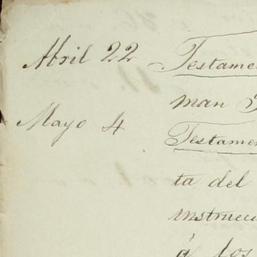 Abril 22 Testame
man
Mayo 4 Testamen
ta del
instrucc
á los